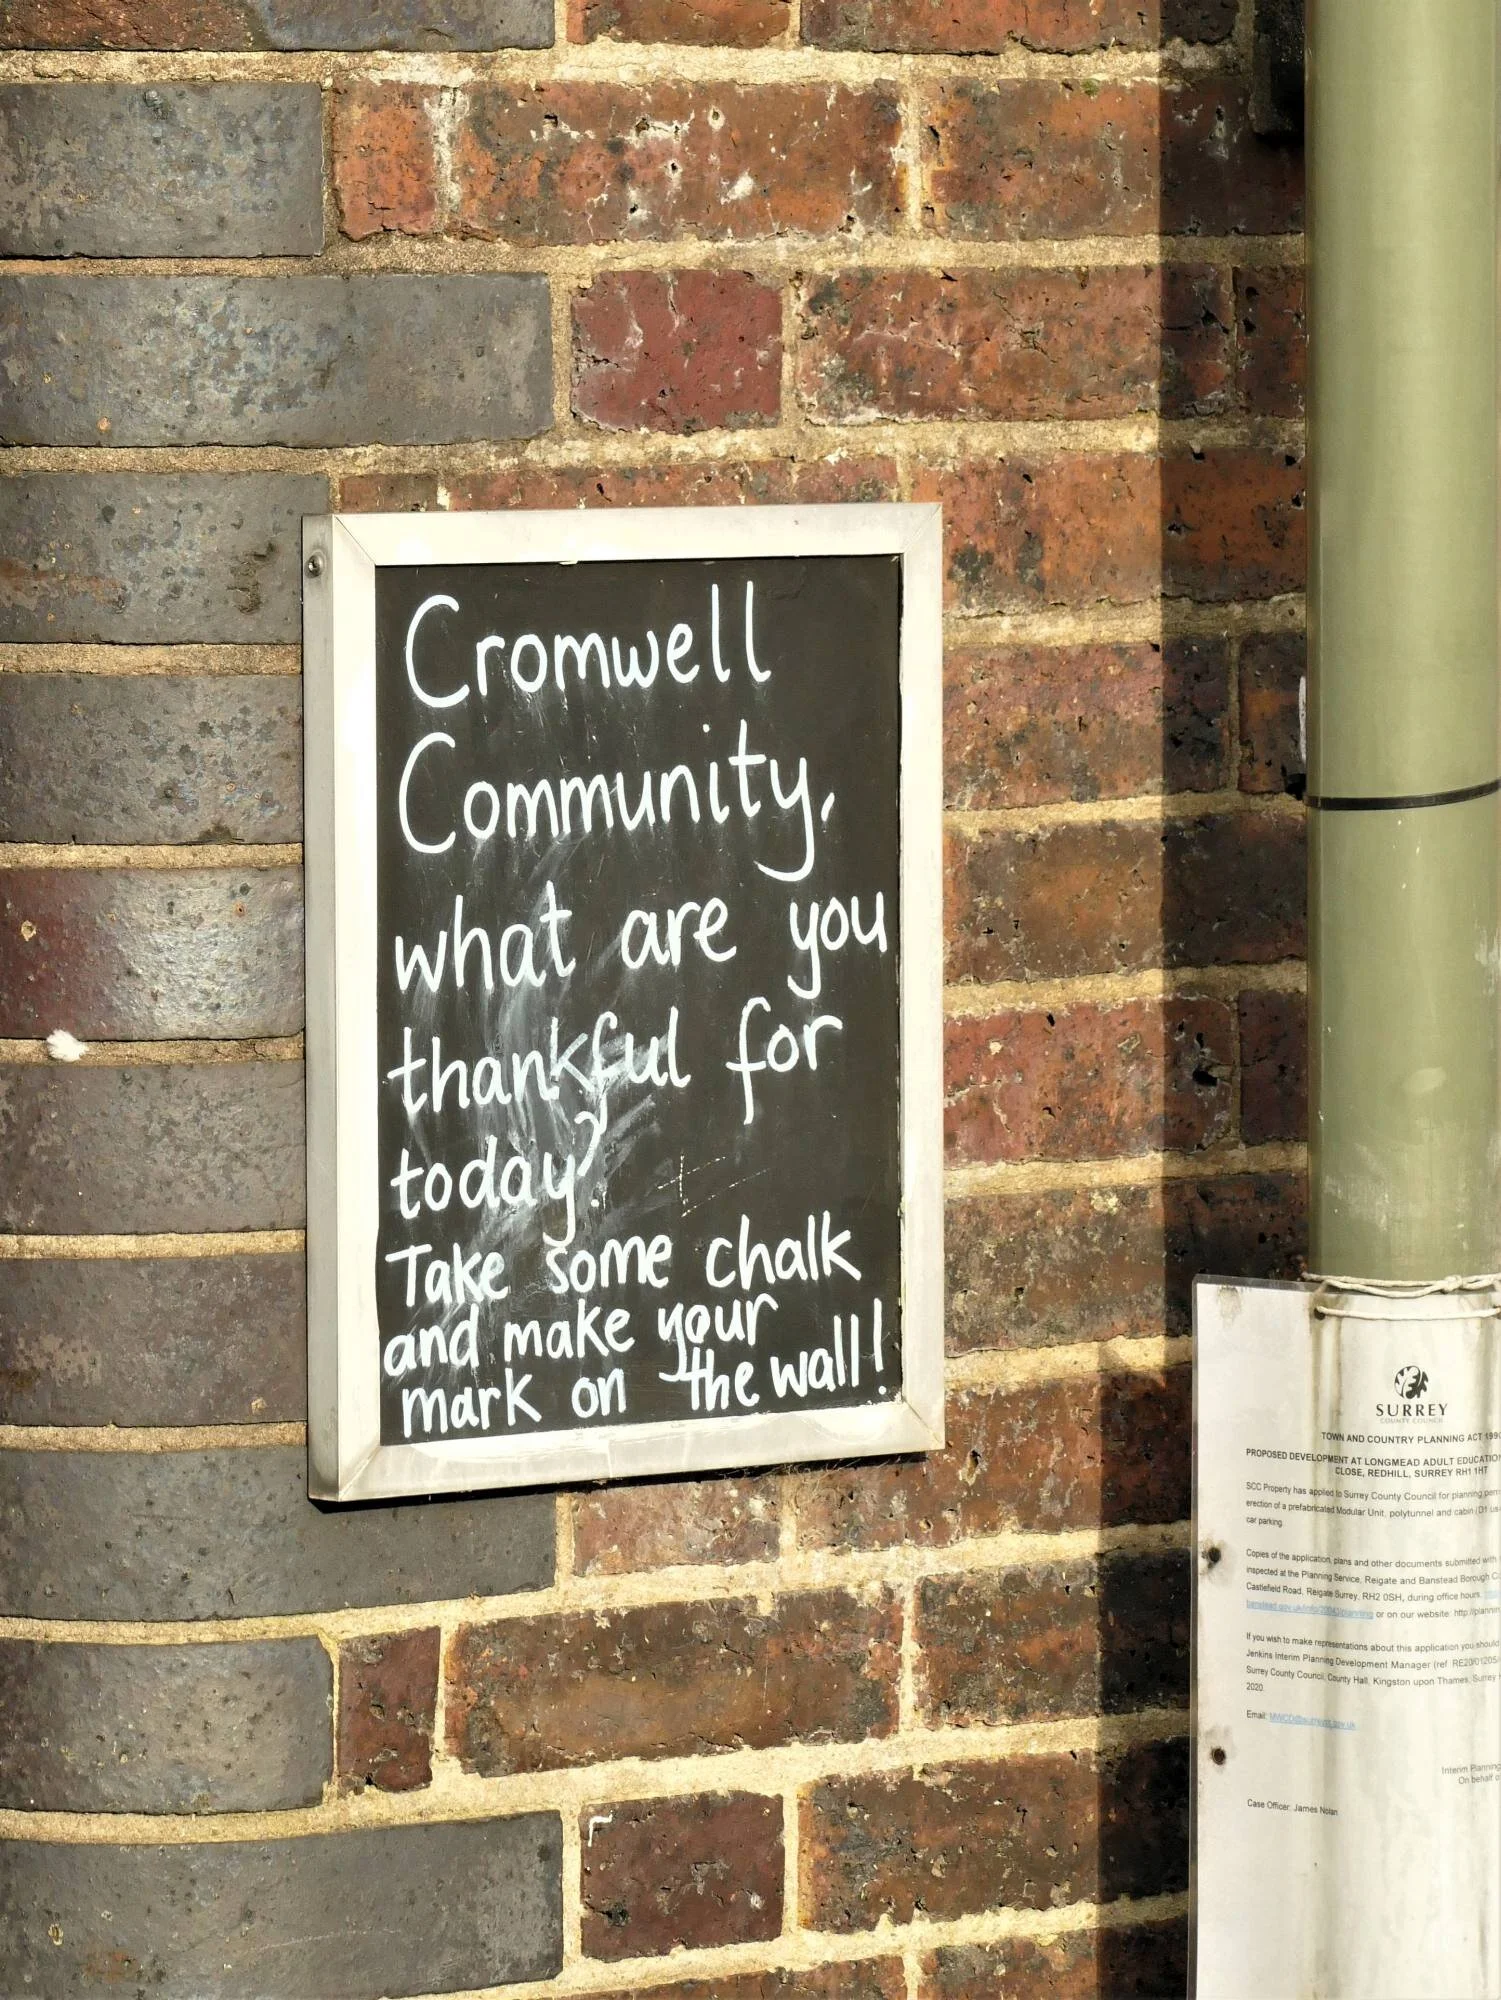 Cromwell
Community,
what are you
thankful for
today?
Take some chalk
and make your
mark on the wall!
SURREY
COUNTY COUNCIL
TOWN AND COUNTRY PLANNING ACT 1990
PROPOSED DEVELOPMENT AT LONGMEAD ADULT EDUCATION
CLOSE, REDHILL, SURREY RH1 1HT
SCC Property has applied to Surrey County Council for planning
erection of a prefabricated Modular Unit, polytunnel and cabin (D1
car parking.
Copies of the application, plans and other documents submitted with
inspected at the Planning Service, Reigate and Banstead Borough
Castlefield Road, Reigate Surrey, RH2 0SH, during office hours,
or on our website: http://
If you wish to make representations about this application you should
Jenkins Interim Planning Development Manager (ref RE20/01205/
Surrey County Council, County Hall, Kingston upon Thames, Surrey
2020.
Email:
Interim Planning
On behalf
Case Officer: James Nolan